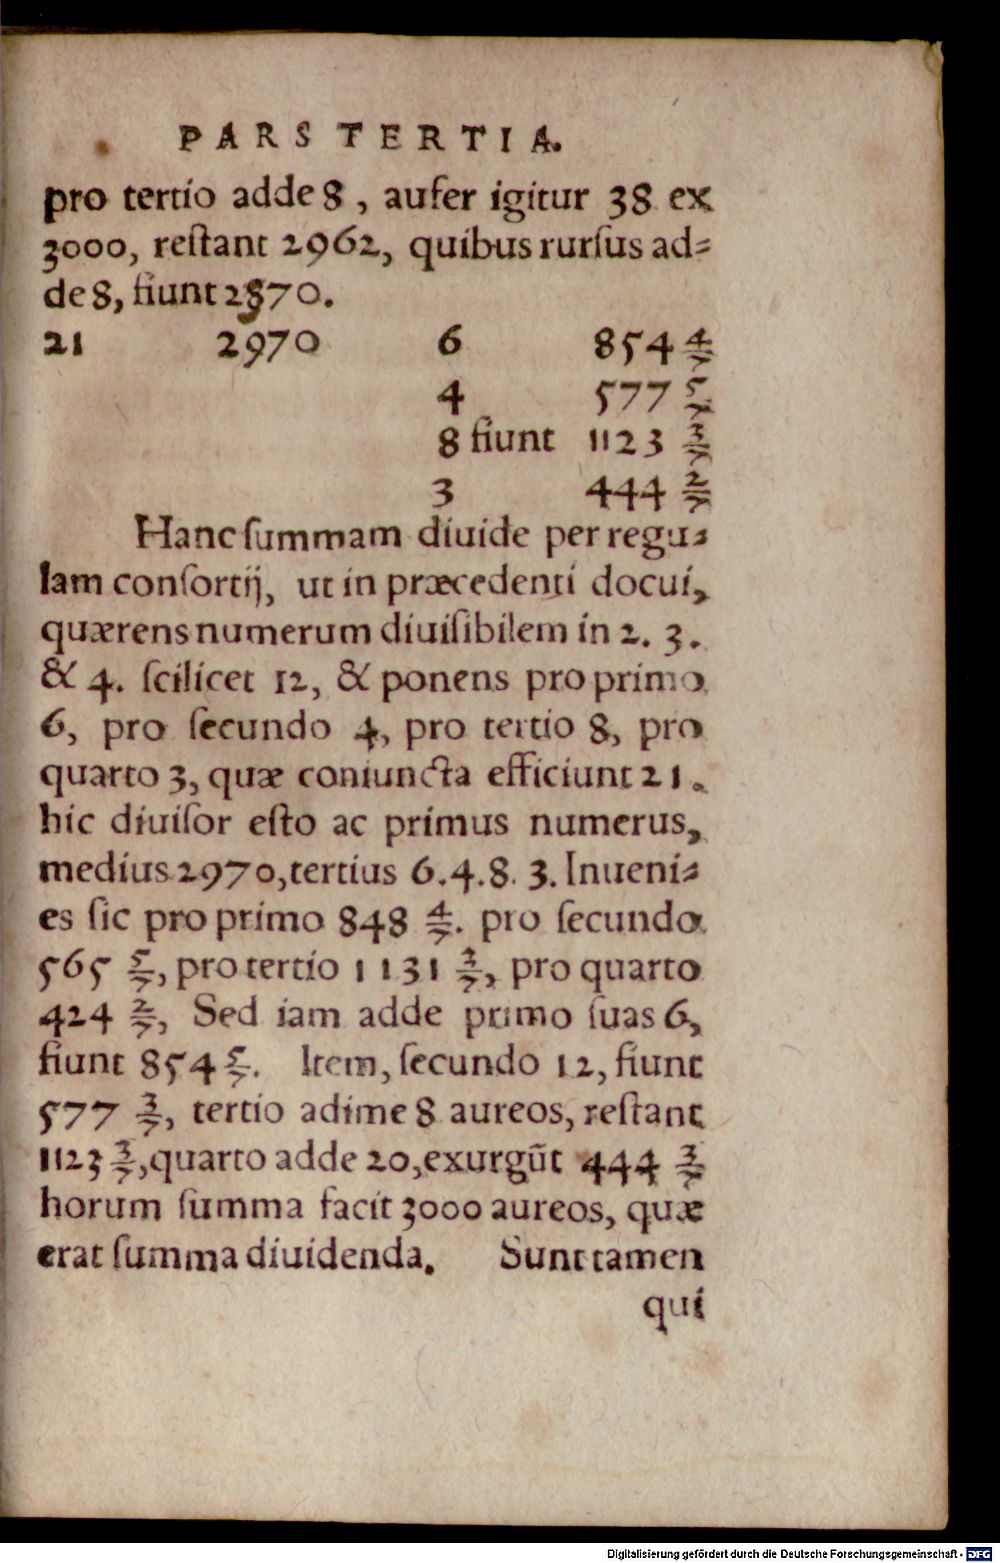 PARS TERTIA.
pro tertio adde 8, aufer igitur 38 ex
3000, reſtant 2962, quibus rurſus ad⸗
de 8, fiunt 2870.
21 2970 6 854 4/7
4 577 5/7
8 fiunt 1123 3/7
3 444 2/7
Hanc ſummam diuide per regu⸗
lam conſortij, ut in præcedenti docui,
quærens numerum diuiſibilem in 2. 3.
& 4. ſcilicet 12, & ponens pro primo
6, pro ſecundo 4, pro tertio 8, pro
quarto 3, quæ coniuncta efficiunt 21.
hic diuiſor eſto ac primus numerus,
medius 2970, tertius 6.4.8.3. Inueni⸗
es ſic pro primo 848 4/7. pro ſecundo
565 5/7, pro tertio 1131 3/7, pro quarto
424 2/7, Sed iam adde primo ſuas 6,
fiunt 854 5/7. Item, ſecundo 12, fiunt
577 3/7, tertio adime 8 aureos, reſtant
1123 3/7, quarto adde 20, exurgũt 444 3/7
horum ſumma facit 3000 aureos, quæ
erat ſumma diuidenda. Sunt tamen
qui
Digitalisierung gefördert durch die Deutsche Forschungsgemeinschaft - DFG